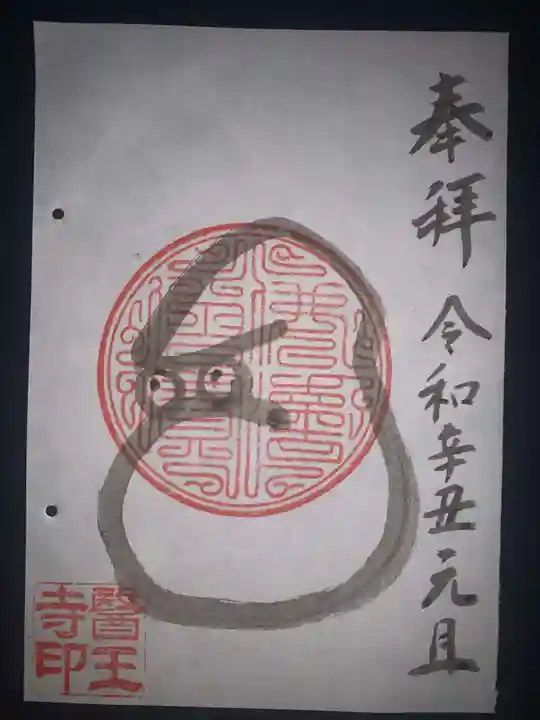 奉拜 令和辛丑元旦
醫王
寺印